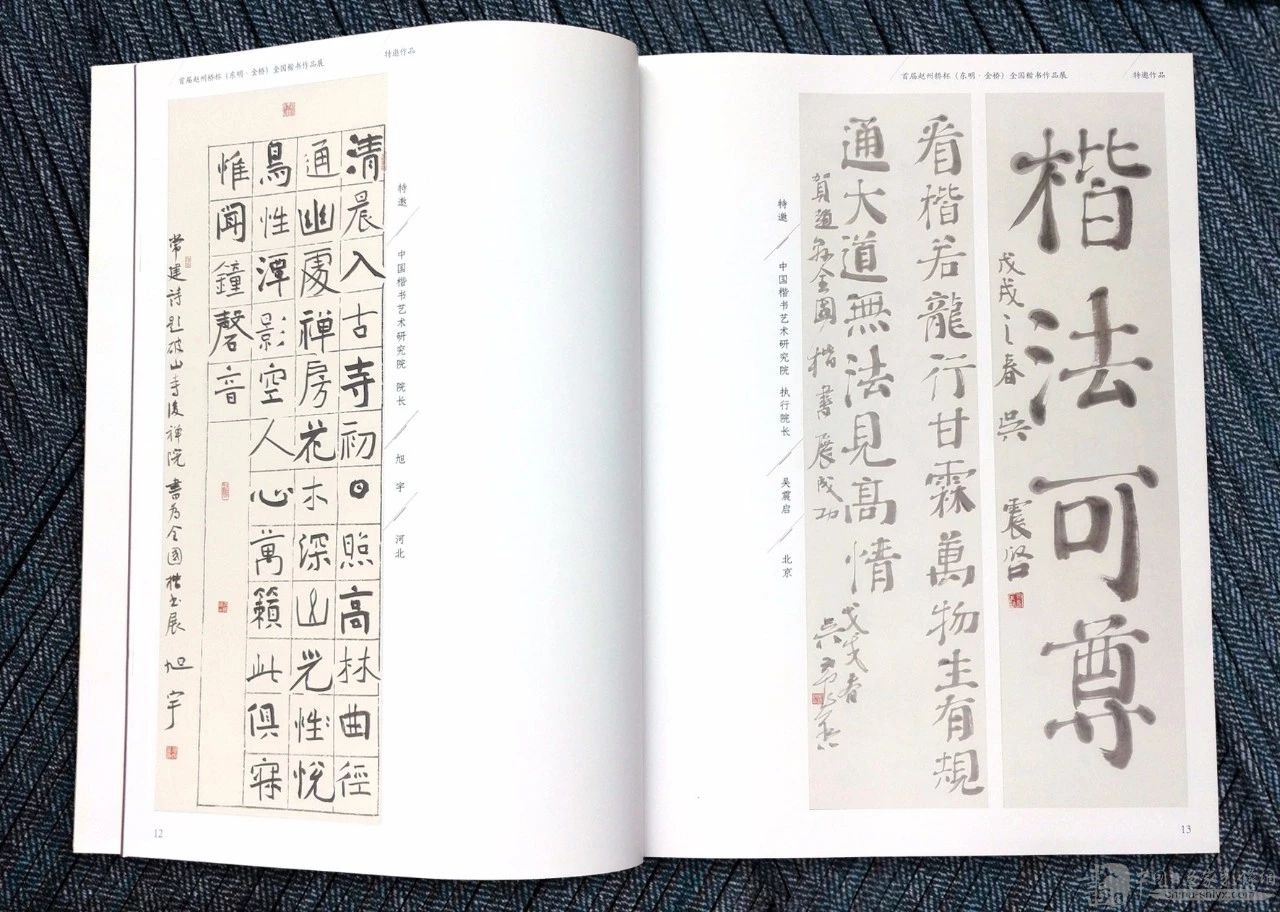 首届赵州桥杯（东明·金桥）全国楷书作品展
特邀作品
清晨入古寺初日照高林曲徑
通幽處禅房花木深山光性悦
鳥性潭影空人心萬籟此俱
惟闻鐘磬音
常建詩題破山寺後禅院書为全國楷书展 旭宇
特邀 中国楷书艺术研究院 院长 旭宇 河北
12
首届赵州桥杯（东明·金桥）全国楷书作品展
特邀作品
楷法可尊
戊戌之春 吳震啓
看楷若龍行甘霖萬物生有規
通大道無法見高情
賀趙縣全國楷書展成功
戊戌春
特邀 中国楷书艺术研究院 执行院长 吴震启 北京
13